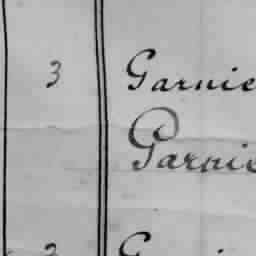 3 Garnie
Garnie